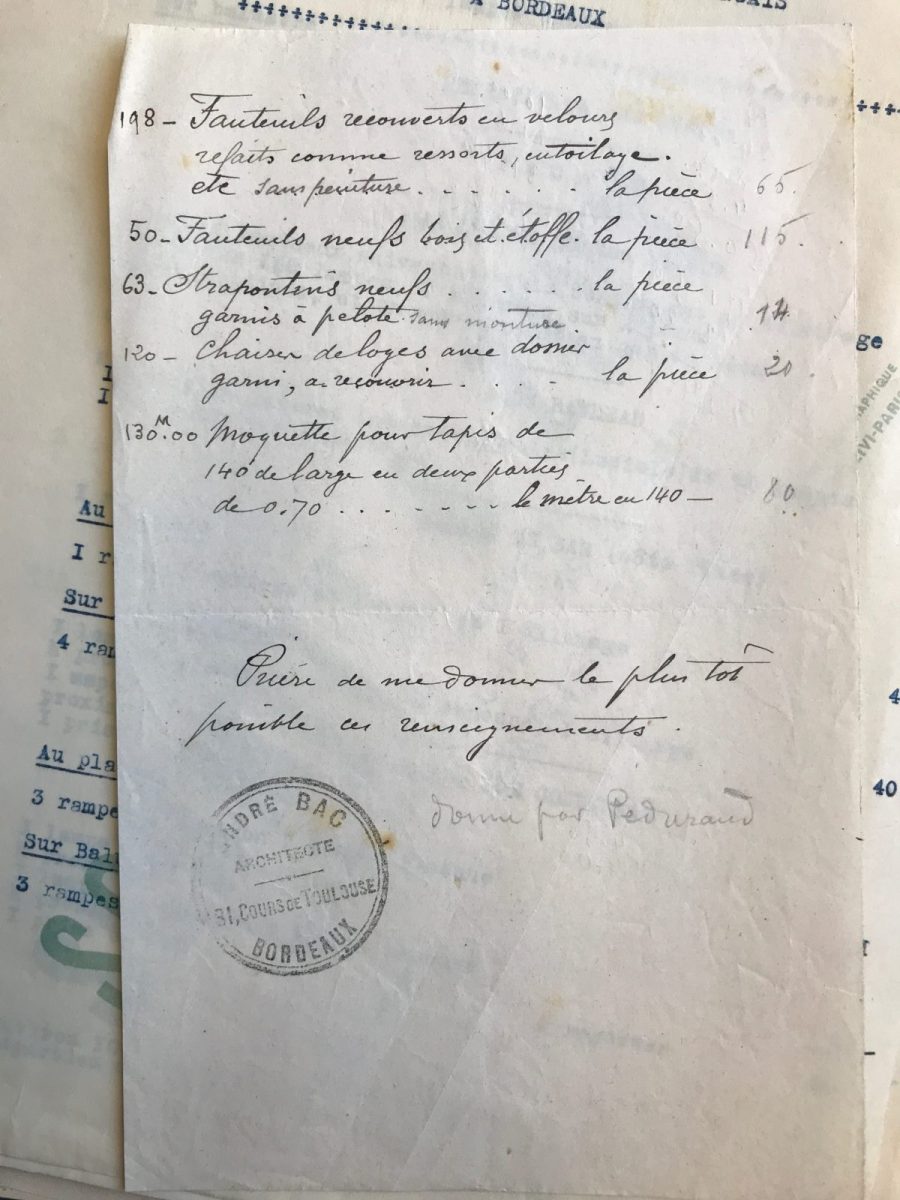 A BORDEAUX
198 - Fauteuils recouverts en velours
refaits comme ressorts, entoilage.
etc sans peinture . . . . . . la pièce 65.
50 - Fauteuils neufs bois et étoffe. la pièce 115.
63 - Strapontins neufs . . . . . . la pièce
garnis à pelote sans monture 14.
120 - Chaises de loges avec dossier
garni, a recouvrir . . . . la pièce 20.
130M.00 Moquette pour tapis de
140 de large en deux parties
de 0.70 . . . . . . . le mètre en 140 - 80
Prière de me donner le plus tôt
possible ces renseignements.
donné par Pedurand
ANDRÉ BAC
ARCHITECTE
31, COURS DE TOULOUSE
BORDEAUX
Au
I r
Sur
4 ram
Au pla
3 rampe
Sur Bal
3 rampes
ge
4
40